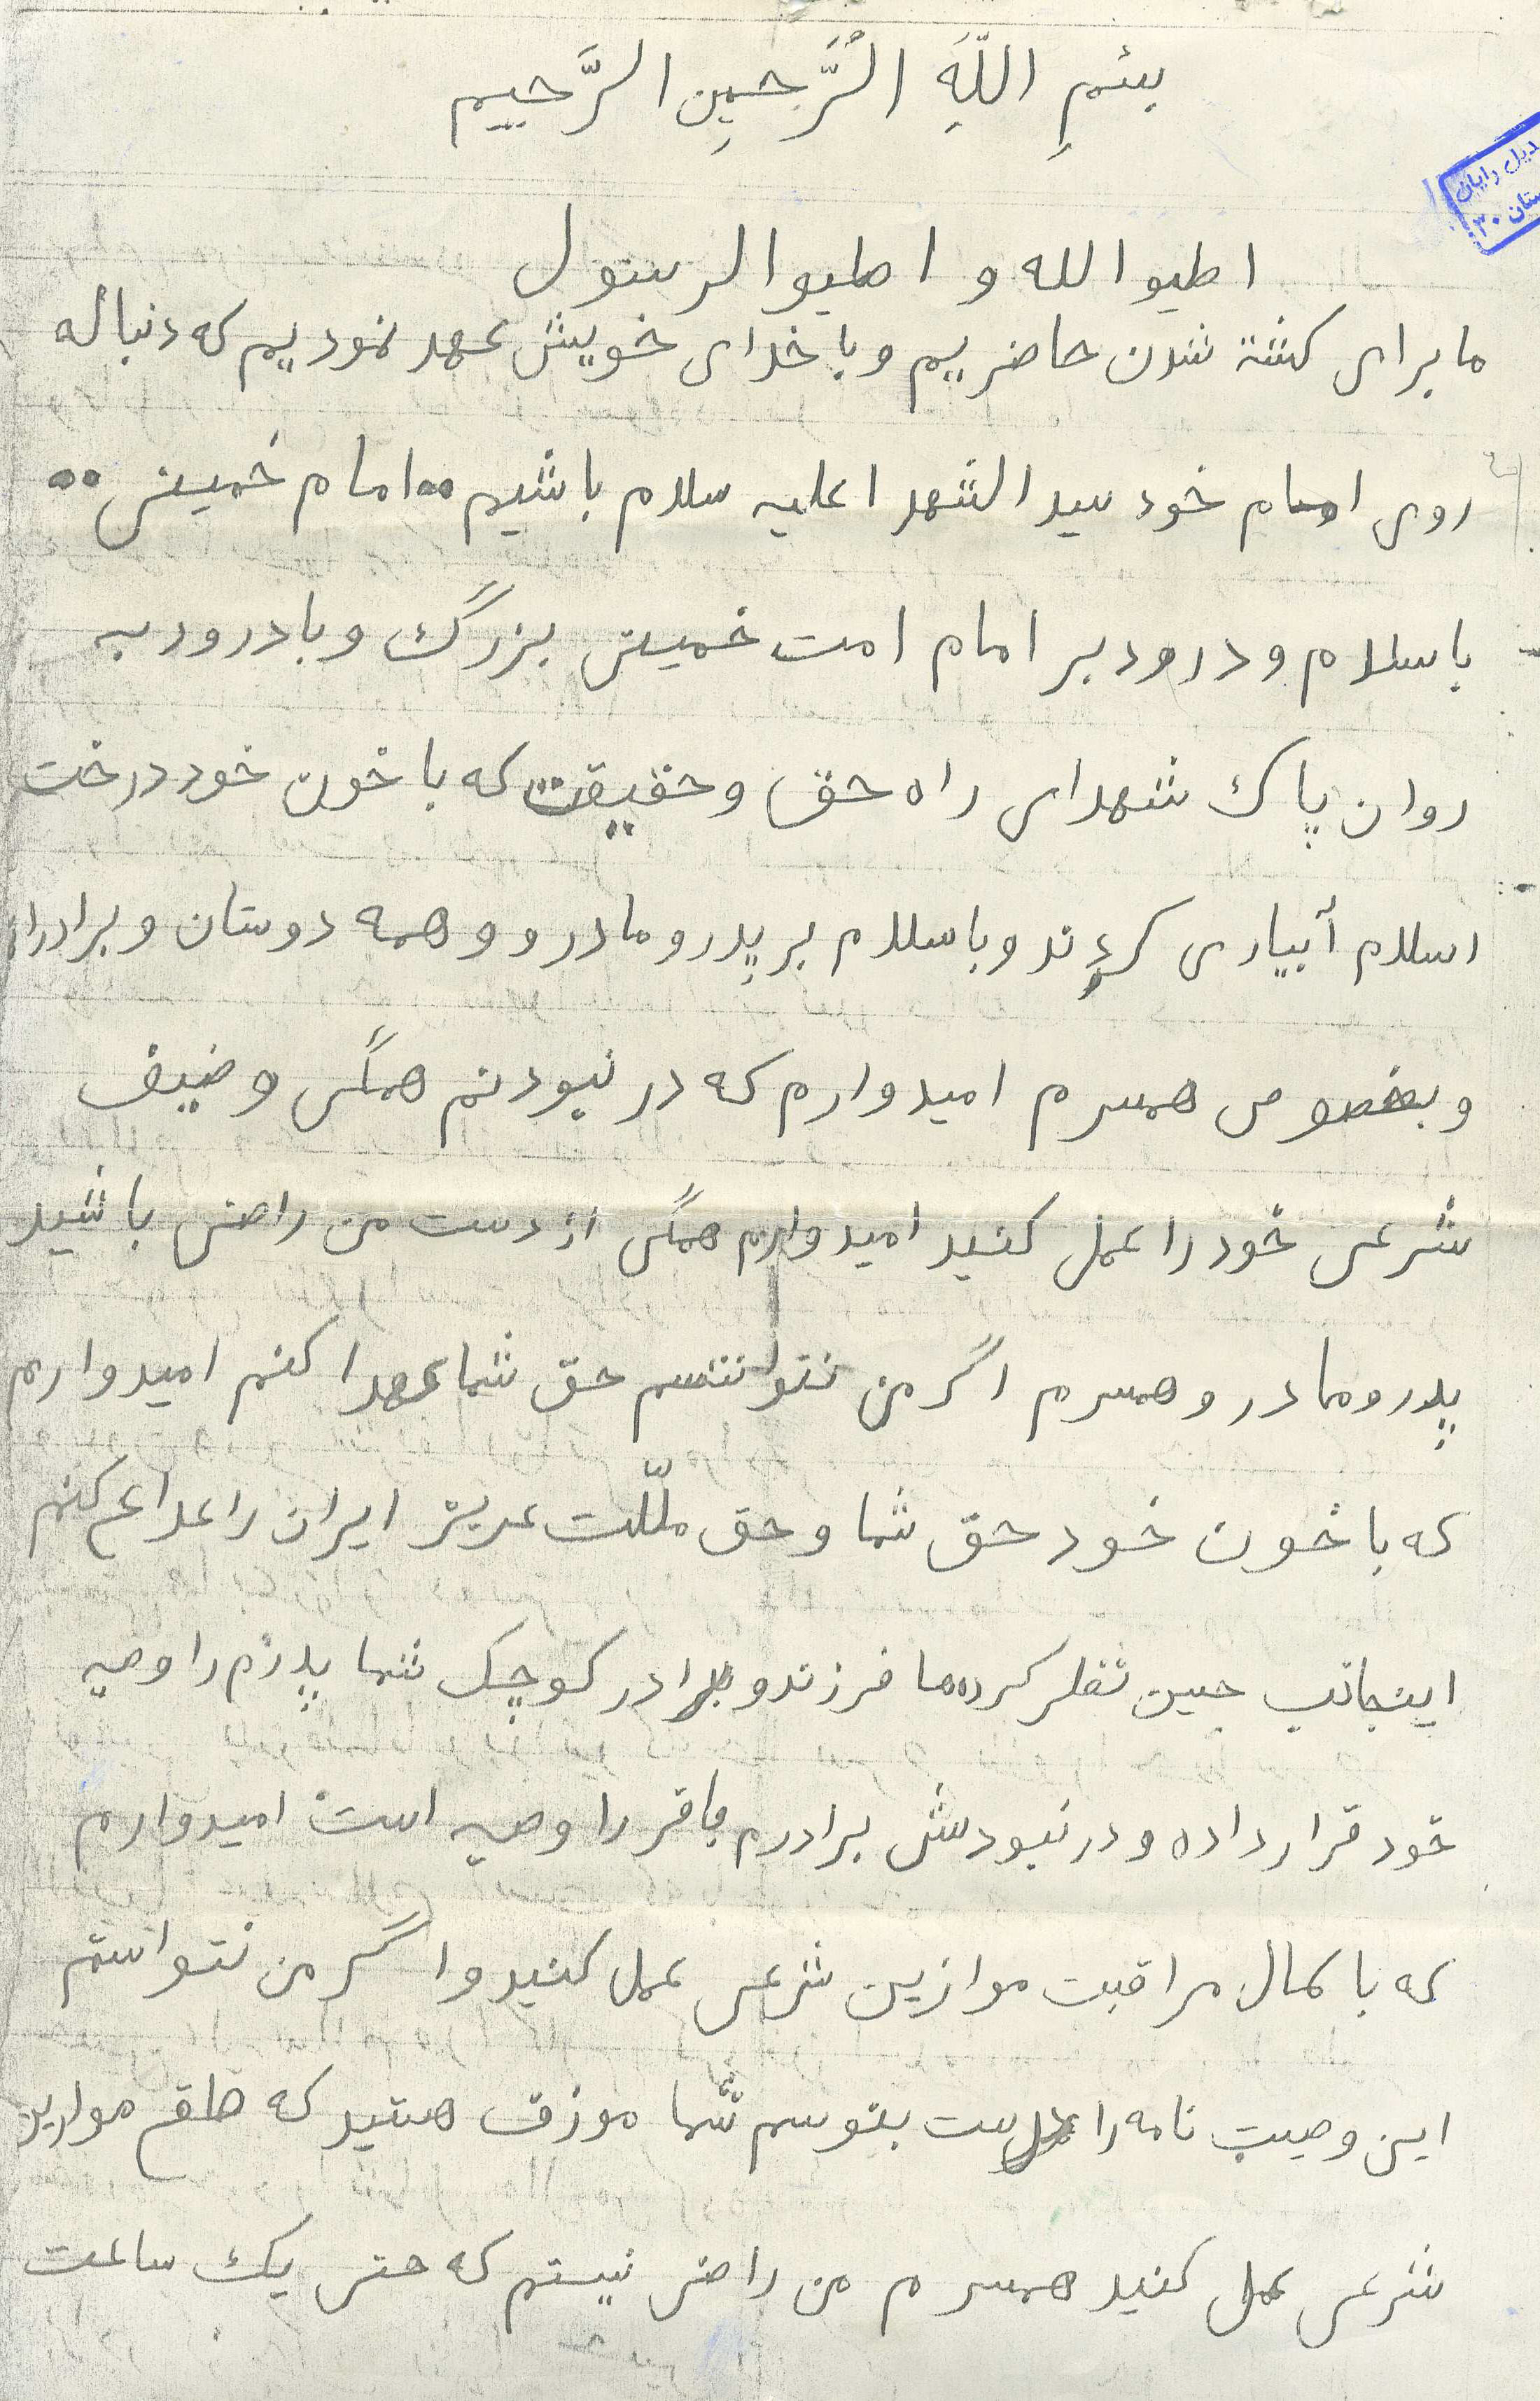 بسْمِ اللّهِ الرَّحمِنِ الرَّحیم
دیل رایان
ستان ۳۰
اطیو الله و اطیو الرسول
ما برای کشته شدن حاضریم و با خدای خویش عهد نمودیم که دنباله
روی امام خود سید الشهدا علیه سلام باشیم ۰۰ امام خمینی ۰۰
با سلام و درود بر امام امت خمینی بزرگ و با درود به
روان پاک شهدای راه حق و حقیقت که با خون خود درخت
اسلام آبیاری کردند و با سلام بر پدر و مادر و و همه دوستان و برادران
و بخصوص همسرم امیدوارم که در نبودنم همگی وضیف
شرعی خود را عمل کنید امیدوارم همگی از دست من راضی باشید
پدر و مادر و همسرم اگر من نتوانستم حق شما عهدا کنم امیدوارم
که با خون خود حق شما و حق ملّت عزیز ایران را عداع کنم
اینجانب حسین تفکر کرده‌ما فرزند و برادر کوچک شما پدرم را وصیه
خود قرار داده و در نبودش برادرم باقر را وصیه است امیدوارم
که با کمال مراقبت موازین شرعی عمل کنید و اگر من نتواستم
این وصیت نامه را بنوسم شما موزف هستید که طلقع موازین
شرعی عمل کنید همسرم من راضی نیستم که حتی یک ساعت